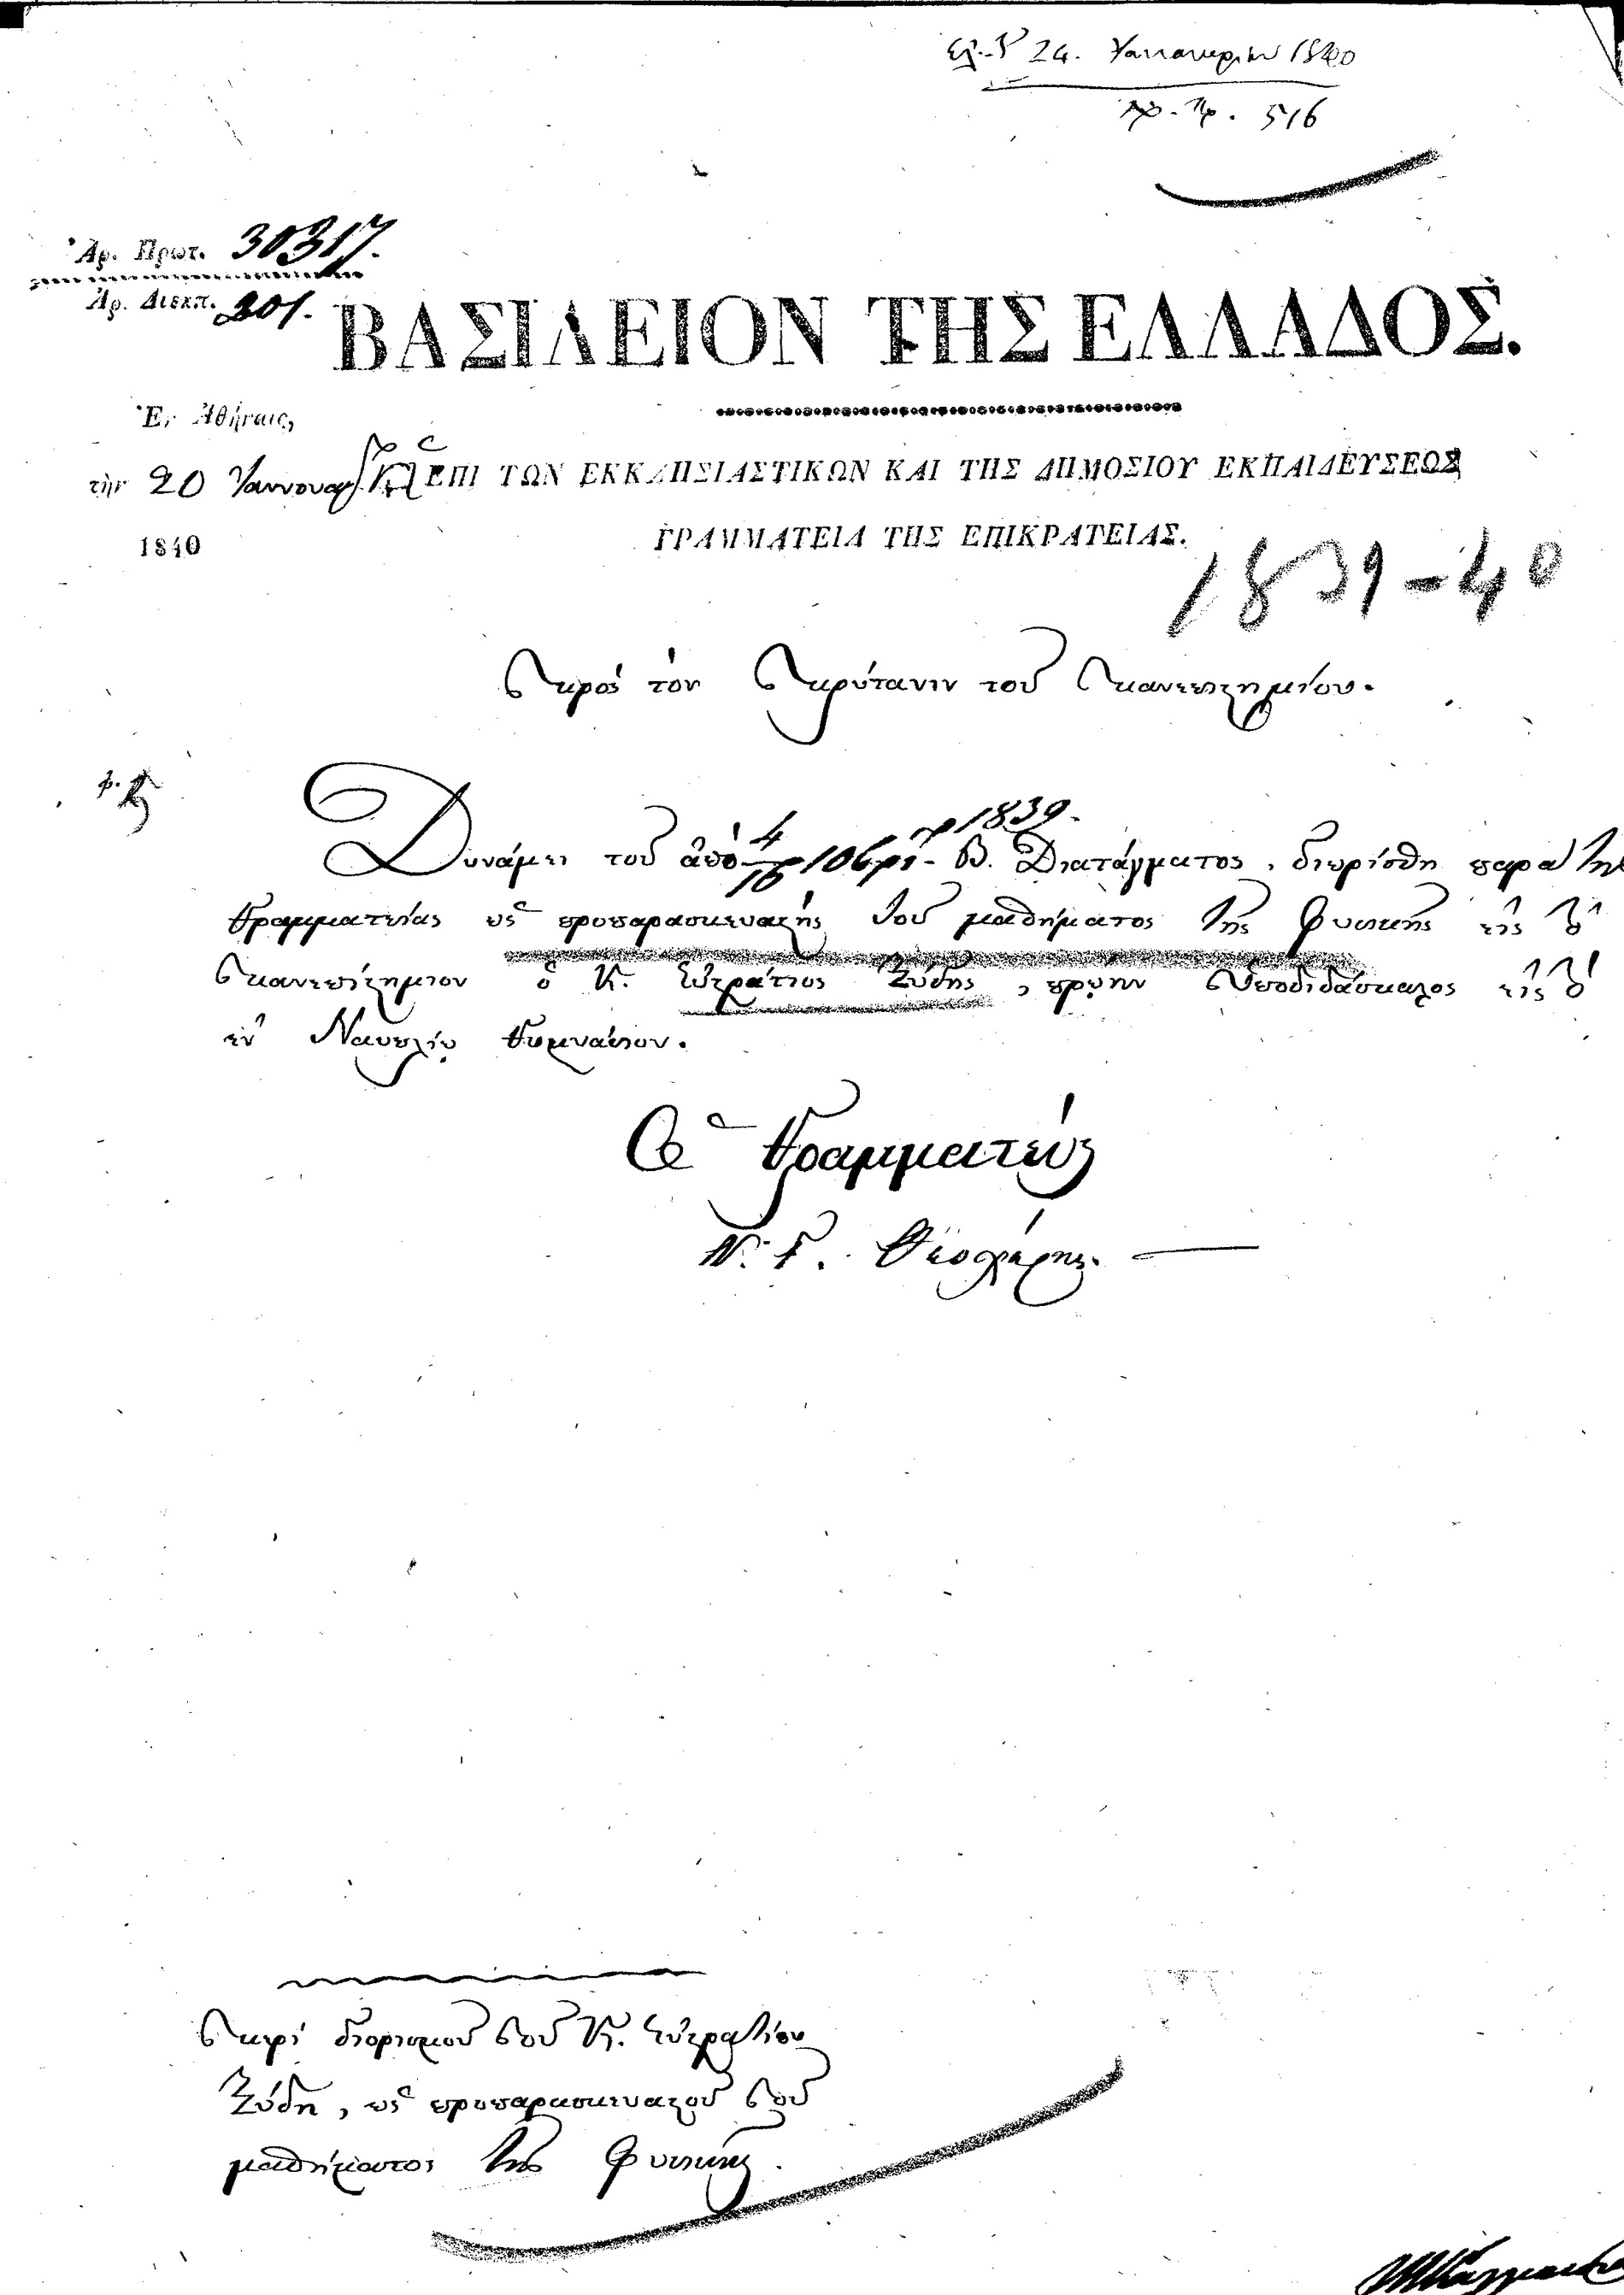 24. Ἰανουαρίου 1840
Ἀρ. Πρ. 516
Ἀρ. Πρωτ. 30317.
Ἀρ. Διεκπ. 201.
ΒΑΣΙΛΕΙΟΝ ΤΗΣ ΕΛΛΑΔΟΣ.
Ἐν Ἀθήναις,
τὴν 20 Ἰαννουαρ
Η ΕΠΙ ΤΩΝ ΕΚΚΛΗΣΙΑΣΤΙΚΩΝ ΚΑΙ ΤΗΣ ΔΗΜΟΣΙΟΥ ΕΚΠΑΙΔΕΥΣΕΩΣ
1840
ΓΡΑΜΜΑΤΕΙΑ ΤΗΣ ΕΠΙΚΡΑΤΕΙΑΣ.
1839-40
Πρὸς τὸν Πρύτανιν τοῦ Πανεπιστημίου.
Δυνάμει τοῦ ἀπὸ 4/16 1839. Β. Διατάγματος, διωρίσθη παρὰ τῆς
Γραμματείας ὡς προπαρασκευαστὴς τοῦ μαθήματος τῆς Φυσικῆς εἰς τὸ
Πανεπιστήμιον ὁ Κ. Εὐστράτιος Ζύδης, πρώην Ὑποδιδάσκαλος εἰς τὸ
ἐν Ναυπλίῳ Γυμνάσιον.
Ὁ Γραμματεὺς
Ν. Γ. Θεοχάρης.
Περὶ διορισμοῦ τοῦ Κ. Εὐστρατίου
Ζύδη, ὡς προπαρασκευαστοῦ τοῦ
μαθήματος τῆς Φυσικῆς.